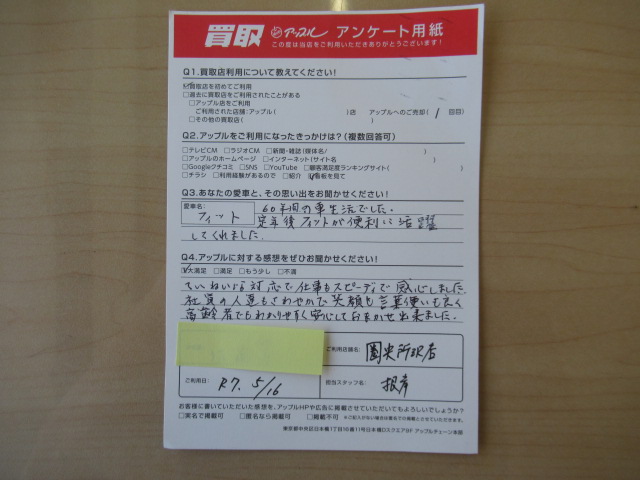 買取 アップル アンケート用紙
この度は当店をご利用いただきありがとうございます!
Q1.買取店利用について教えてください!
☑買取店を初めてご利用
□過去に買取店をご利用されたことがある
□アップル店をご利用
ご利用された店舗:アップル( )店 アップルへのご売却( 1 回目)
□その他の買取店( )
Q2.アップルをご利用になったきっかけは?(複数回答可)
□テレビCM □ラジオCM □新聞・雑誌(媒体名/ )
□アップルのホームページ □インターネット(サイト名 )
□Googleクチコミ □SNS □YouTube □顧客満足度ランキングサイト( )
□チラシ □利用経験があるので □紹介 ☑看板を見て
Q3.あなたの愛車と、その思い出をお聞かせください!
愛車名: フィット
60年間の車生活でした。
定年後フィットが便利に活躍
してくれました。
Q4.アップルに対する感想をぜひお聞かせください!
☑大満足 □満足 □もう少し □不満
ていねいな対応で仕事もスピーディで感心しました。
社員の人達もさわやかで笑顔も言葉使いも良く
高齢者でもわかりやすく安心しておまかせ出来ました。
ご利用店舗名: 圏央所沢店
ご利用日: R7. 5/16
担当スタッフ名:
お客様に書いていただいた感想を、アップルHPや広告に掲載させていただいてもよろしいでしょうか?
□実名で掲載可 □匿名なら掲載可 □掲載不可 ※ご記入がない場合は匿名での掲載とさせていただきます。
東京都中央区日本橋1丁目16番11号日本橋Dスクエア8F アップルチェーン本部